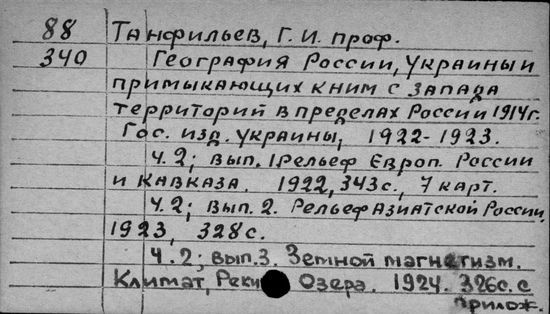 88 Танфильев, Г. И. проф.
340 География России, Украины и
примыкающих к ним с запада
территорий в пределах России 1914г.
Гос. изд. Украины, 1922-1923.
ч.2; вып.1 Рельеф Европ. России
и Кавказа. 1922, 343с., 7 карт.
ч.2; вып.2. Рельеф Азиатской России,
1923, 328с.
ч.2; вып.3. Земной магнетизм.
Климат, Реки Озера. 1924. 326с. с
прилож.